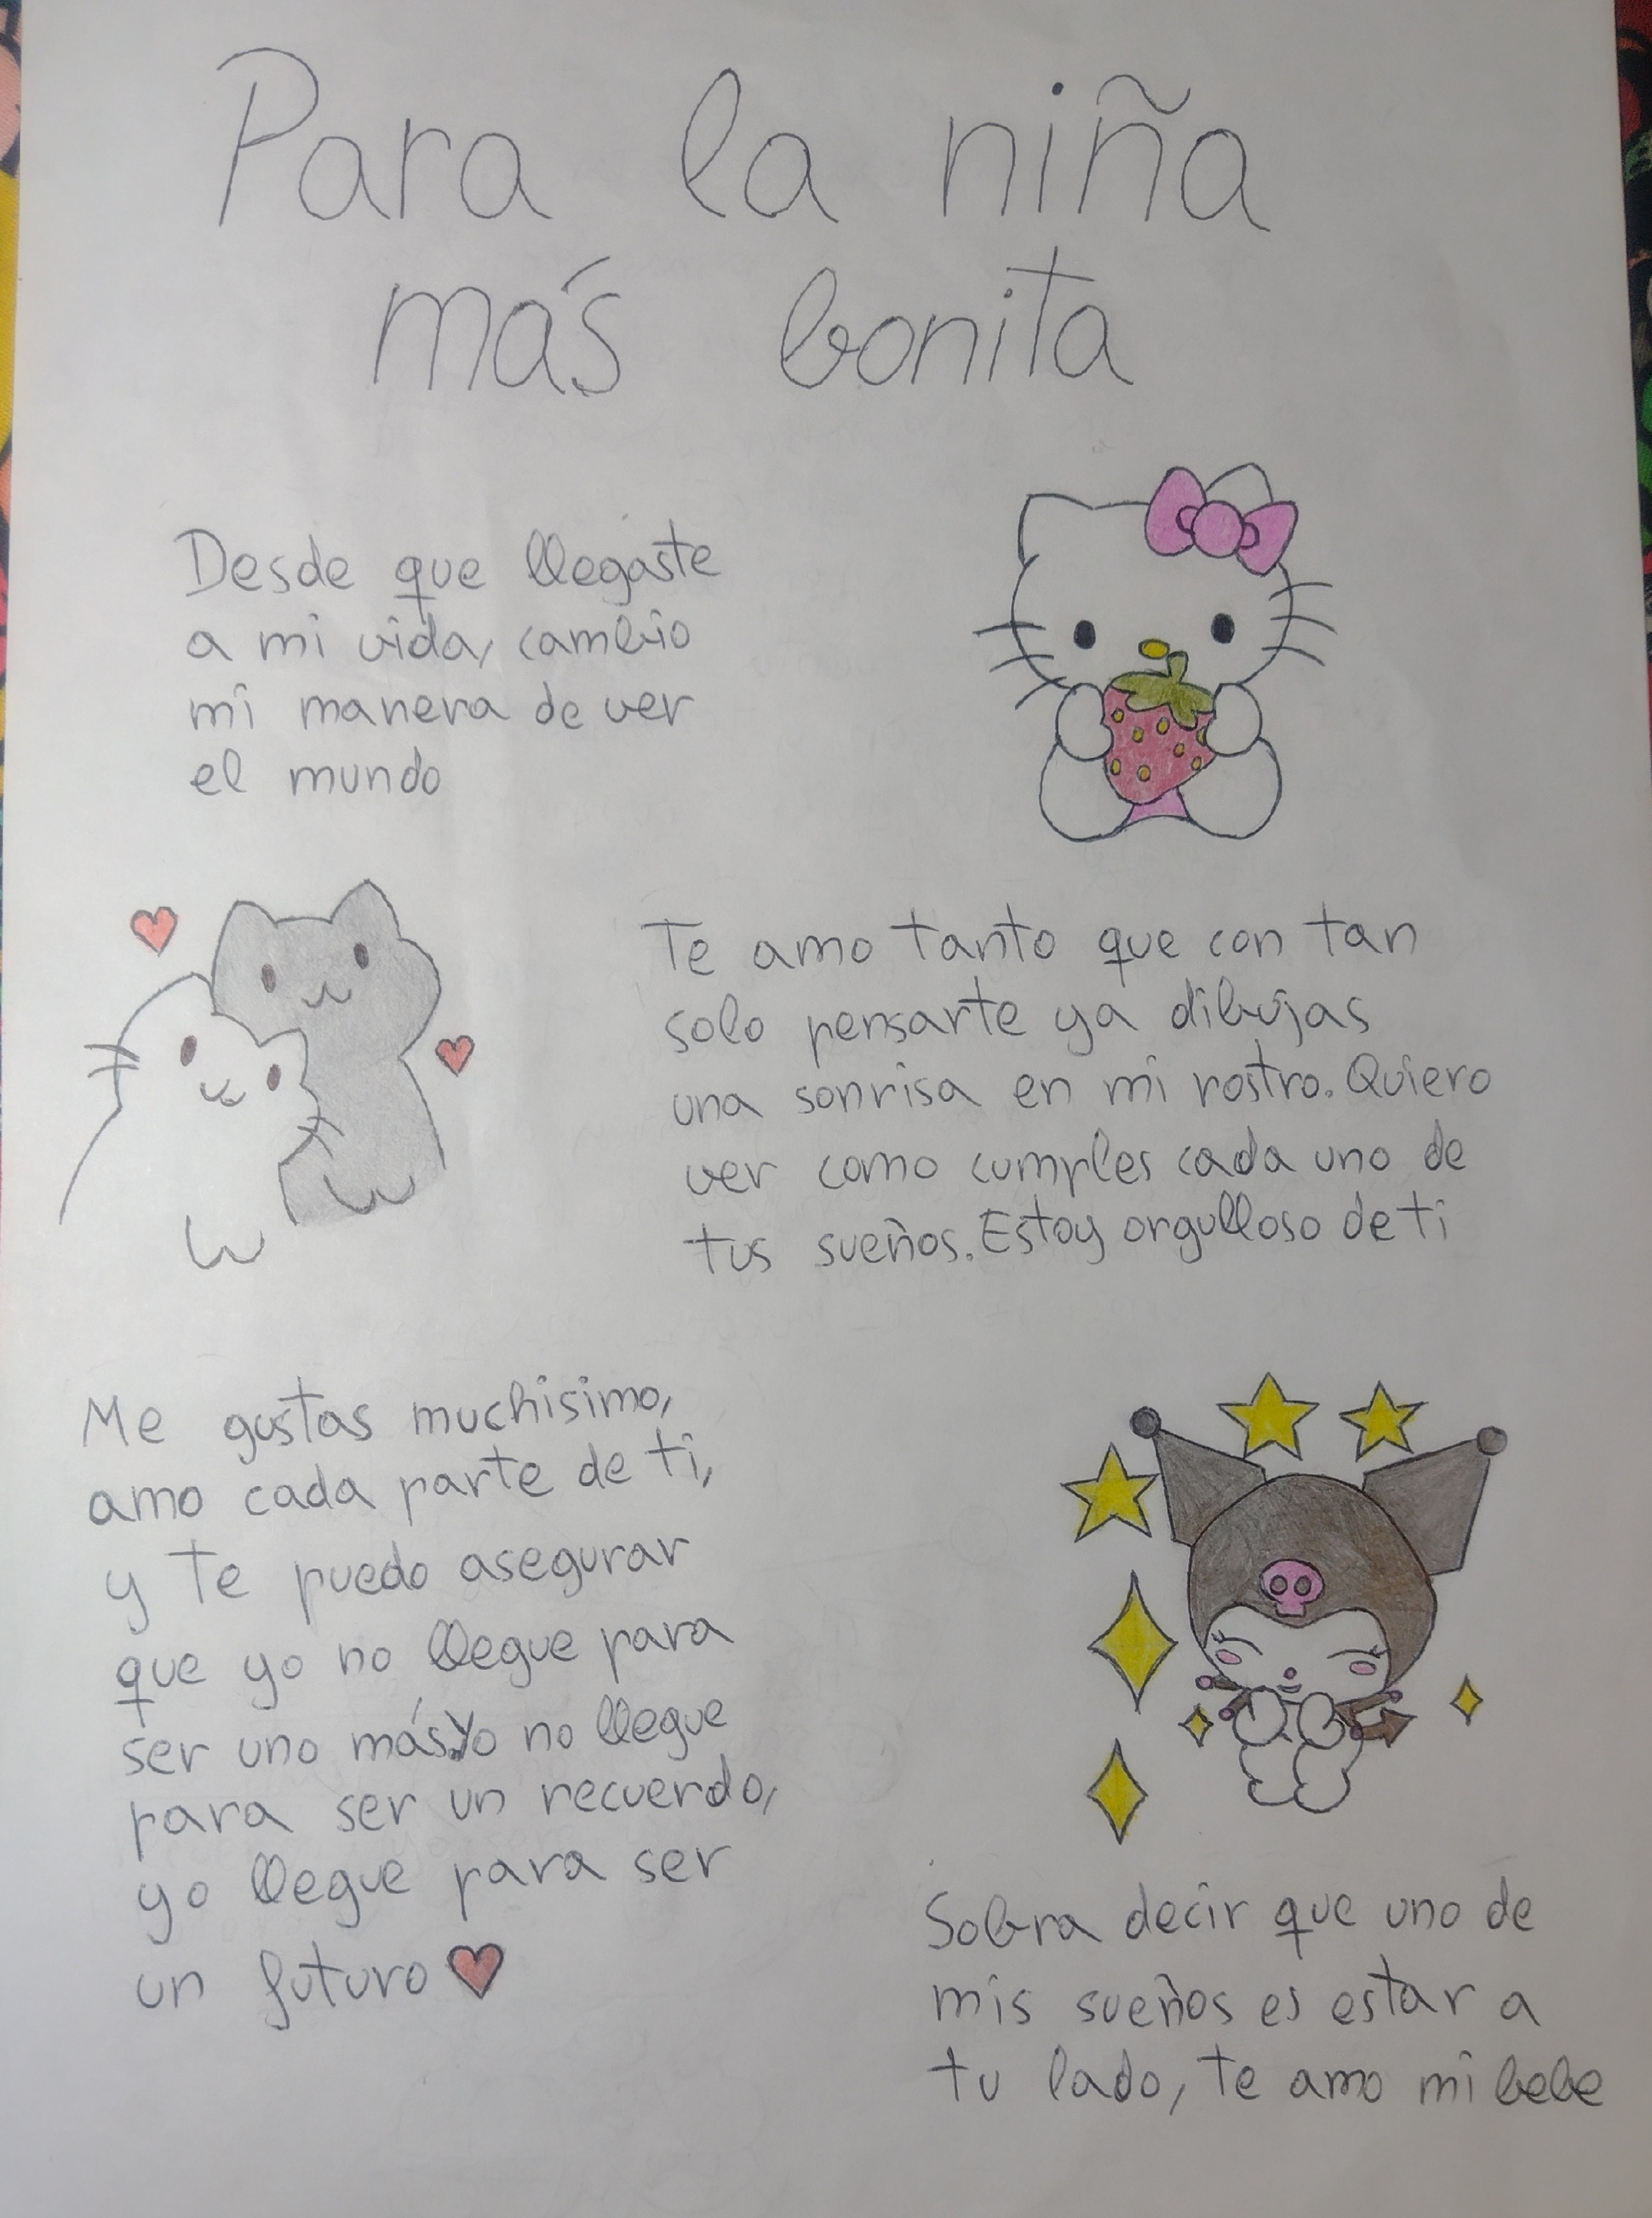 Para la niña
más bonita
Desde que llegaste
a mi vida, cambio
mi manera de ver
el mundo
Te amo tanto que con tan
solo pensarte ya dibujas
una sonrisa en mi rostro. Quiero
ver como cumples cada uno de
tus sueños. Estoy orgulloso de ti
Me gustas muchisimo,
amo cada parte de ti,
y te puedo asegurar
que yo no llegue para
ser uno más. Yo no llegue
para ser un recuerdo,
yo llegue para ser
un futuro
Sobra decir que uno de
mis sueños es estar a
tu lado, te amo mi bebe